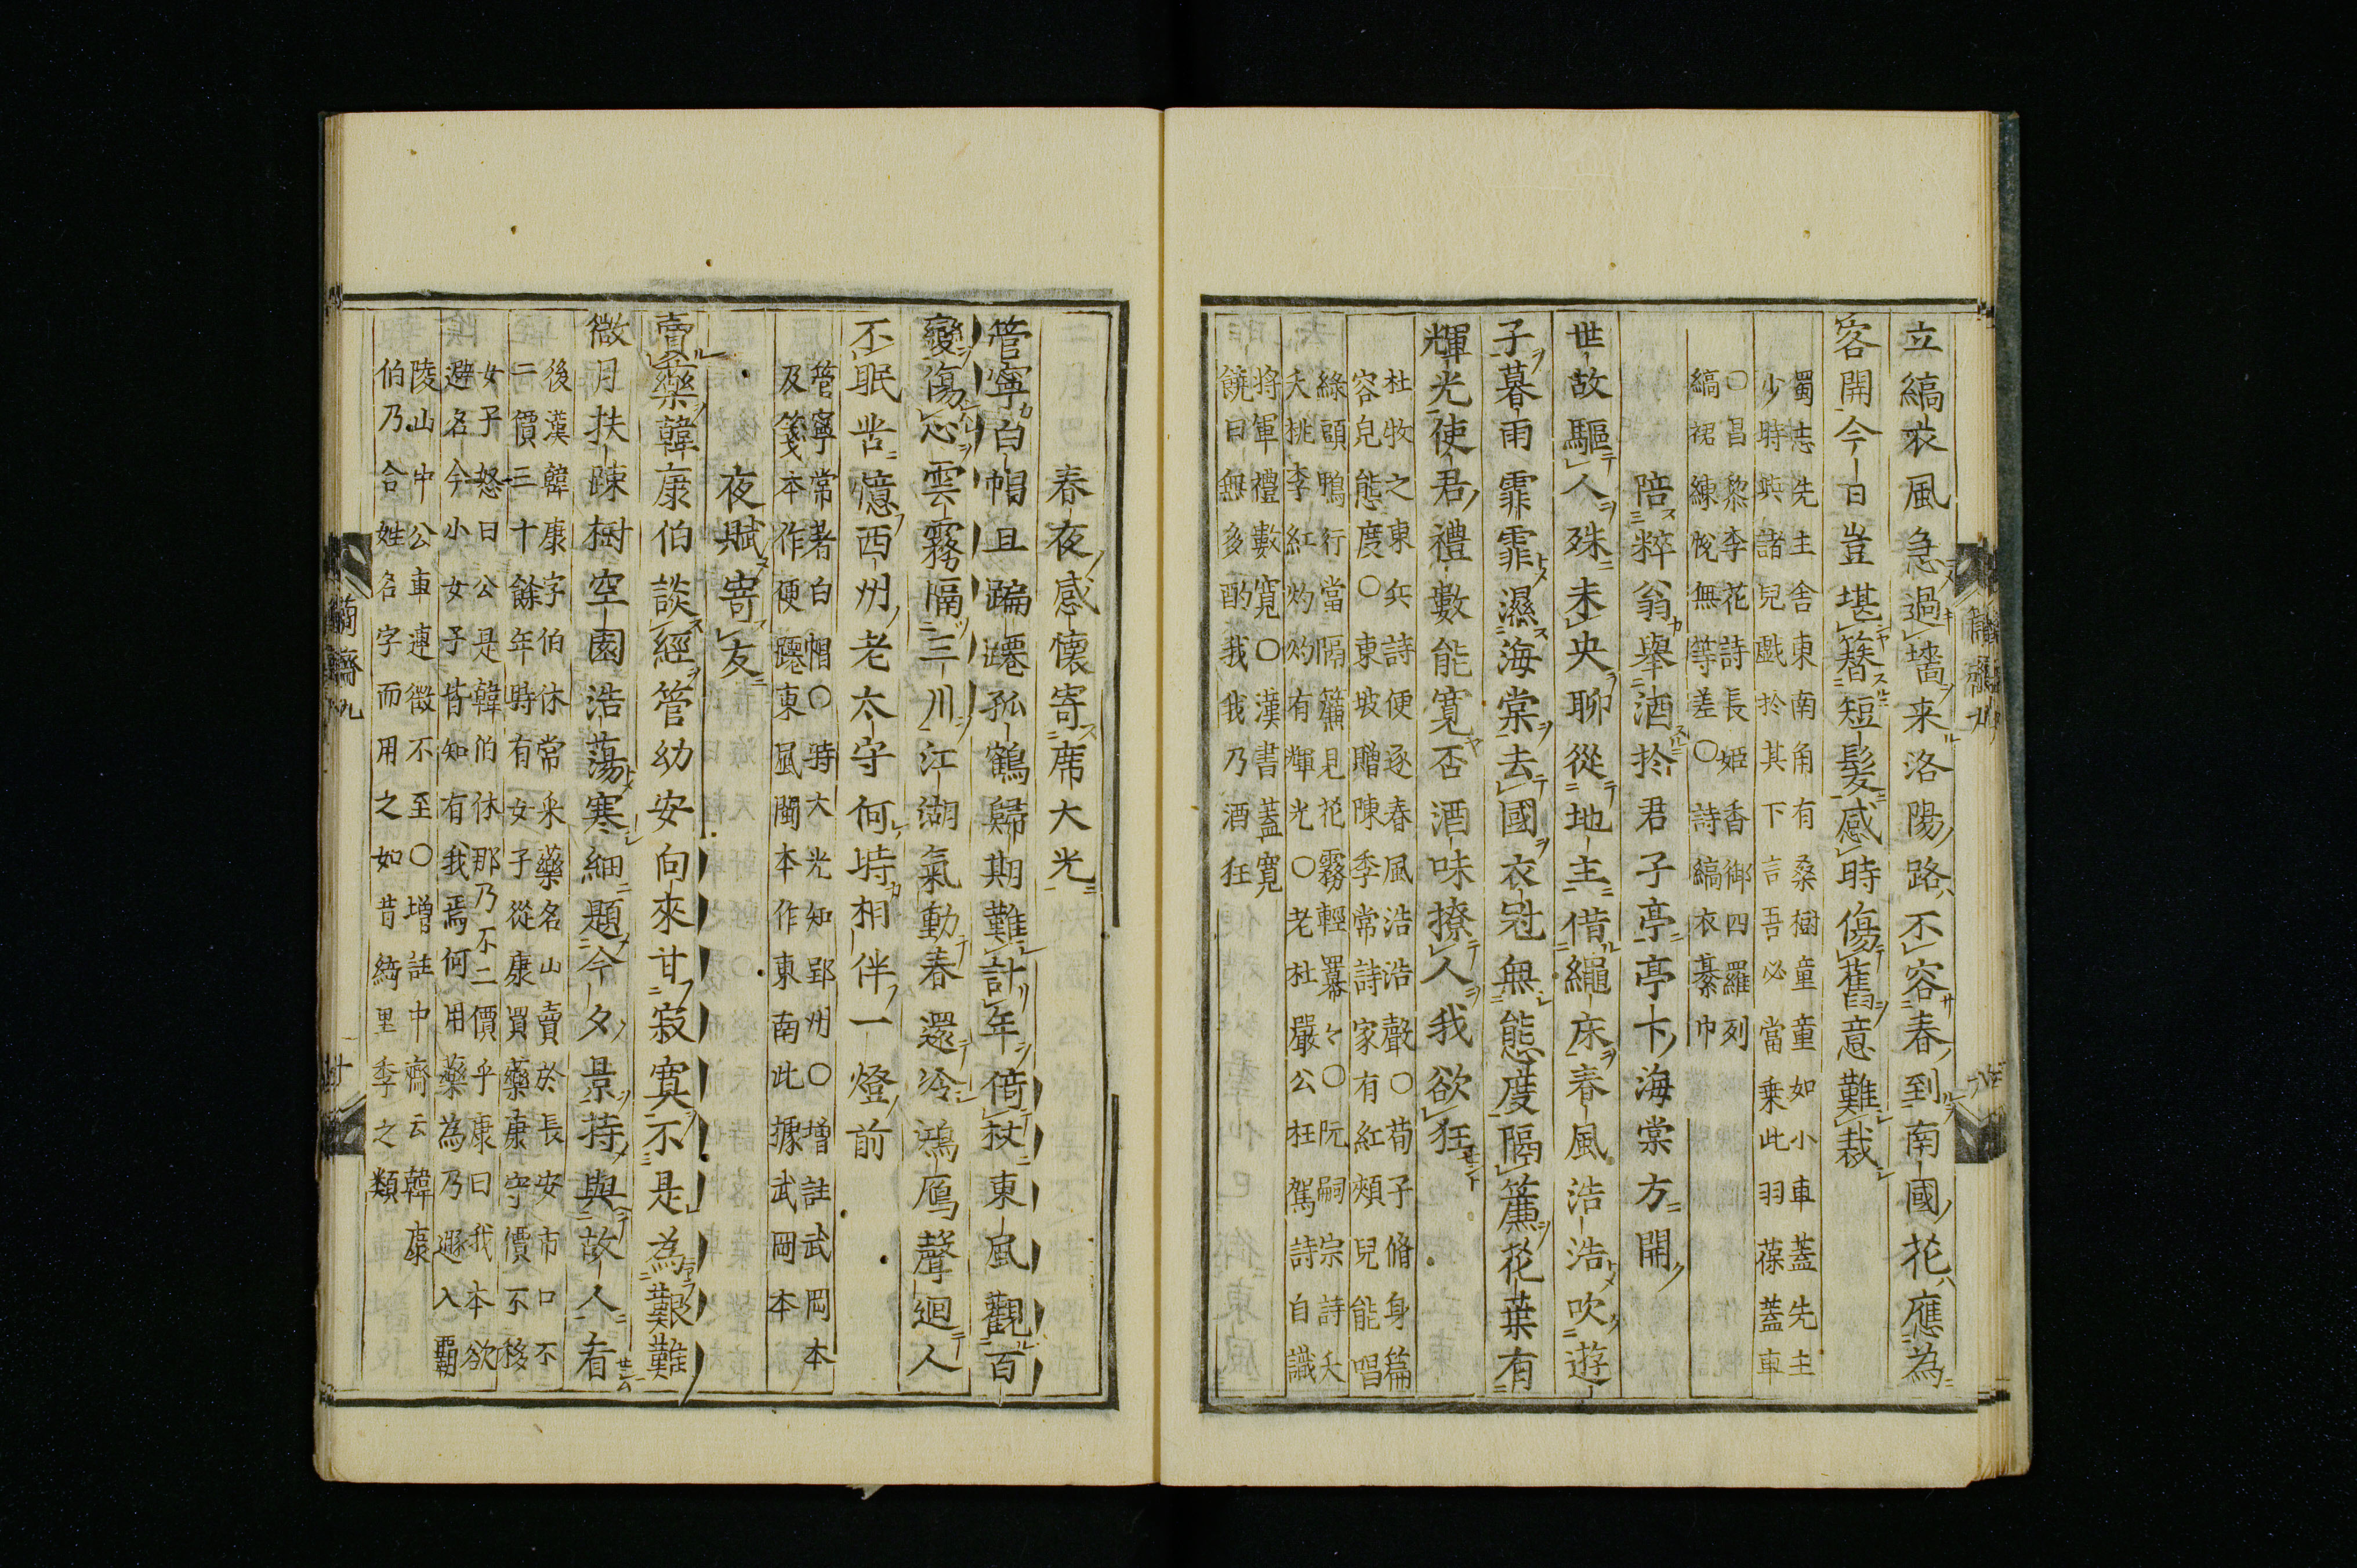 立縞衣風急過墻来洛陽路不容春到南國花應為
客開今日豈堪簪短髮感時傷舊意難裁
蜀志先主舍東南角有桑樹童童如小車蓋先主
少時與諸兒戲於其下言吾必當乗此羽葆蓋車
○昌黎李花詩長姬香御四羅列
縞裙練帨無等差○詩縞衣綦巾
陪粹翁舉酒於君子亭亭下海棠方開
世故驅人殊未央聊從地主借繩床春風浩浩吹遊
子暮雨霏霏濕海棠去國衣冠無態度隔簾花葉有
輝光使君禮數能寬否酒味撩人我欲狂
杜牧之東兵詩便逐春風浩浩聲○荀子脩身篇
容皃態度○東坡贈陳季常詩家有紅頰兒能唱
綠頭鴨行當隔簾見花霧輕羃〻○阮嗣宗詩夭
夭桃李紅灼灼有輝光○老杜嚴公枉駕詩自識
将軍禮數寛○漢書蓋寛
饒曰無多酌我我乃酒狂
春夜感懷寄席大光
管寧白帽且蹁躚孤鶴歸期難計年倚杖東風觀百
變傷心雲霧隔三川江湖氣動春還冷鴻鴈聲迴人
不眠苦憶西州老太守何時相伴一燈前
管寧常著白帽○時大光知郢州○増註武岡本
及箋本作便躚東風閩本作東南此據武岡本
夜賦寄友
賣藥韓康伯談經管幼安向來甘寂寞不是為艱難
微月扶踈樹空園浩蕩寒細題今夕景持與故人看
後漢韓康字伯休常采藥名山賣於長安市口不
二價三十餘年時有女子從康買藥康守價不移
女子怒曰公是韓伯休那乃不二價乎康曰我本欲
避名今小女子皆知有我焉何用藥為乃遯入覇
陵山中公車連徴不至○増註中齋云韓康
伯乃合姓名字而用之如昔綺里季之類
簡齋九